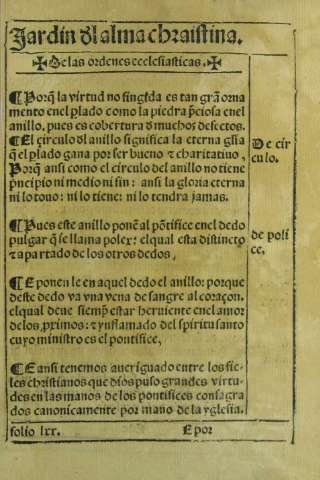 Jardin ďl alma chraistina.
✠De las ordenes ecclesiasticas.✠
¶Porq̃ la virtud no fingida es tan grã orna
mento en el plado como la piedra p̃ciosa en el
anillo, pues es cobertura ď muchos defectos.
¶El circulo ďl anillo significa la eterna gl̃ia
q̃ el plado gana por ser bueno ⁊ charitatiuo,
Porq̃ ansi como el circulo del anillo no tiene
p̃ncipio ni medio ni fin: ansi la gloria eterna
ni lo touo: ni lo tiene: ni lo tendra jamas.
De cir
culo.
¶Pues este anillo ponẽ al põtifice en el dedo
pulgar q̃ se llama polex: el qual esta distincto
⁊ apartado de los otros dedos,
de poli
ce.
¶E ponen le en aquel dedo el anillo: porque
deste dedo va vna vena de sangre al coraçon.
el qual deue siemp̃ estar heruiente en el amor
de los p̃ximos: ⁊ ynflamado del spiritu santo
cuyo ministro es el pontifice,
¶E ansi tenemos aueriguado entre los fie-
les christianos que dios puso grandes virtu-
des en las manos de los pontifices consagra
dos canonicamente por mano de la yglesia.
folio lxx. E por